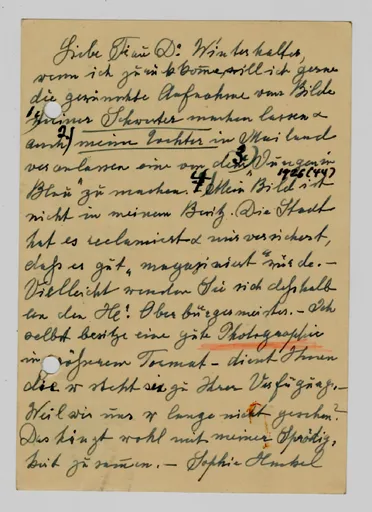 Liebe Frau Dr. Winterhalter,
wenn ich zurückkomme, will ich gerne
die gewünschte Aufnahme vom Bilde
1) meiner Schwester machen lassen &
auch 2) meine Tochter in Mailand
veranlassen eine von der 3) "Jungen in
Blau" zu machen. 4) "Mein" Bild ist 1926 (44)
nicht in meinem Besitz. Die Stadt
hat es reclamiert & mir versichert,
daß es gut "magaziniert" würde. –
Vielleicht wenden Sie sich deshalb
an den H. Oberbürgermeister. – Ich
selbst besitze eine gute Photographie
in größerem Format – dient Ihnen
die, steht zu Ihrer Verfügung. –
Weil wir uns so lange nicht gesehen?
Das hängt wohl mit meiner Sprödig-
keit zusammen. – Sophie Hunkel